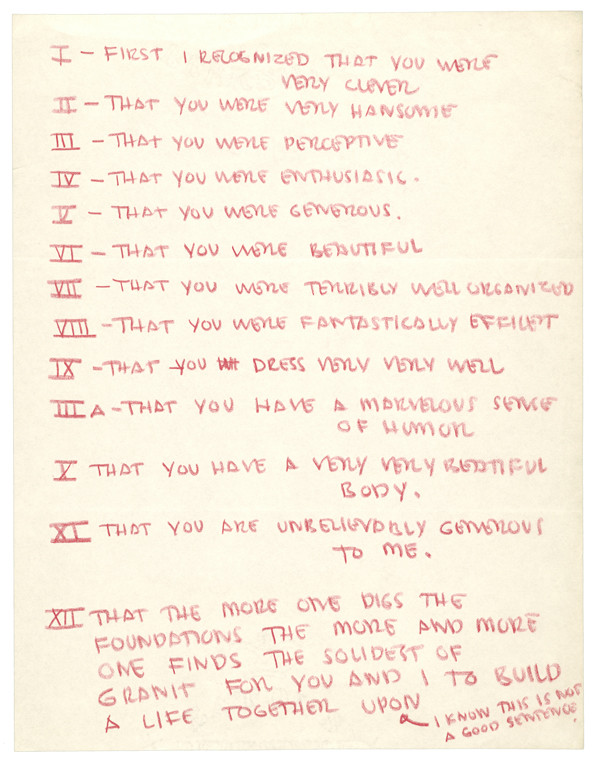 I – FIRST I RECOGNIZED THAT YOU WERE
VERY CLEVER
II – THAT YOU WERE VERY HANSOME
III – THAT YOU WERE PERCEPTIVE
IV – THAT YOU WERE ENTHUSIASIC.
V – THAT YOU WERE GENEROUS.
VI – THAT YOU WERE BEAUTIFUL
VII – THAT YOU WERE TERRIBLY WELL ORGANIZED
VIII – THAT YOU WERE FANTASTICALLY EFFICENT
IX – THAT YOU DRESS VERY VERY WELL
III A – THAT YOU HAVE A MARVELOUS SENSE
OF HUMOR
X THAT YOU HAVE A VERY VERY BEATIFUL
BODY.
XI THAT YOU ARE UNBELIEVABLY GENEROUS
TO ME.
XII THAT THE MORE ONE DIGS THE
FOUNDATIONS THE MORE AND MORE
ONE FINDS THE SOLIDEST OF
GRANIT FOR YOU AND I TO BUILD
A LIFE TOGETHER UPON
I KNOW THIS IS NOT
A GOOD SENTENCE.